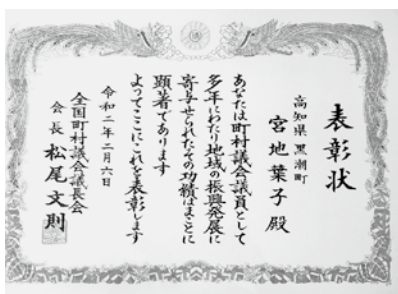 表彰状
高知県黒潮町
宮地葉子殿
あなたは町村議会議員として
多年にわたり地域の振興発展に
寄与せられたその功績はまことに
顕著であります
よってここにこれを表彰します
令和二年二月六日
全国町村議会議長会
会長 松尾文則